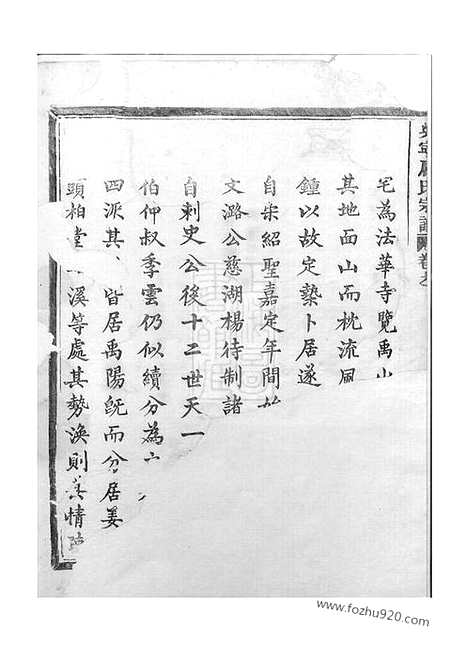 氏宗譜 卷之
宅為法華寺覽禹山
其地面山而枕流風
鍾以故定埶卜居遂
自宋紹聖嘉定年間始
文潞公慈湖楊待制諸
自刺史公後十二世天一
伯仲叔季雲仍似續分為
四派其 皆居禹陽既而分居姜
頭柏堂 溪等處其勢渙則其情
www.fozhu920.com